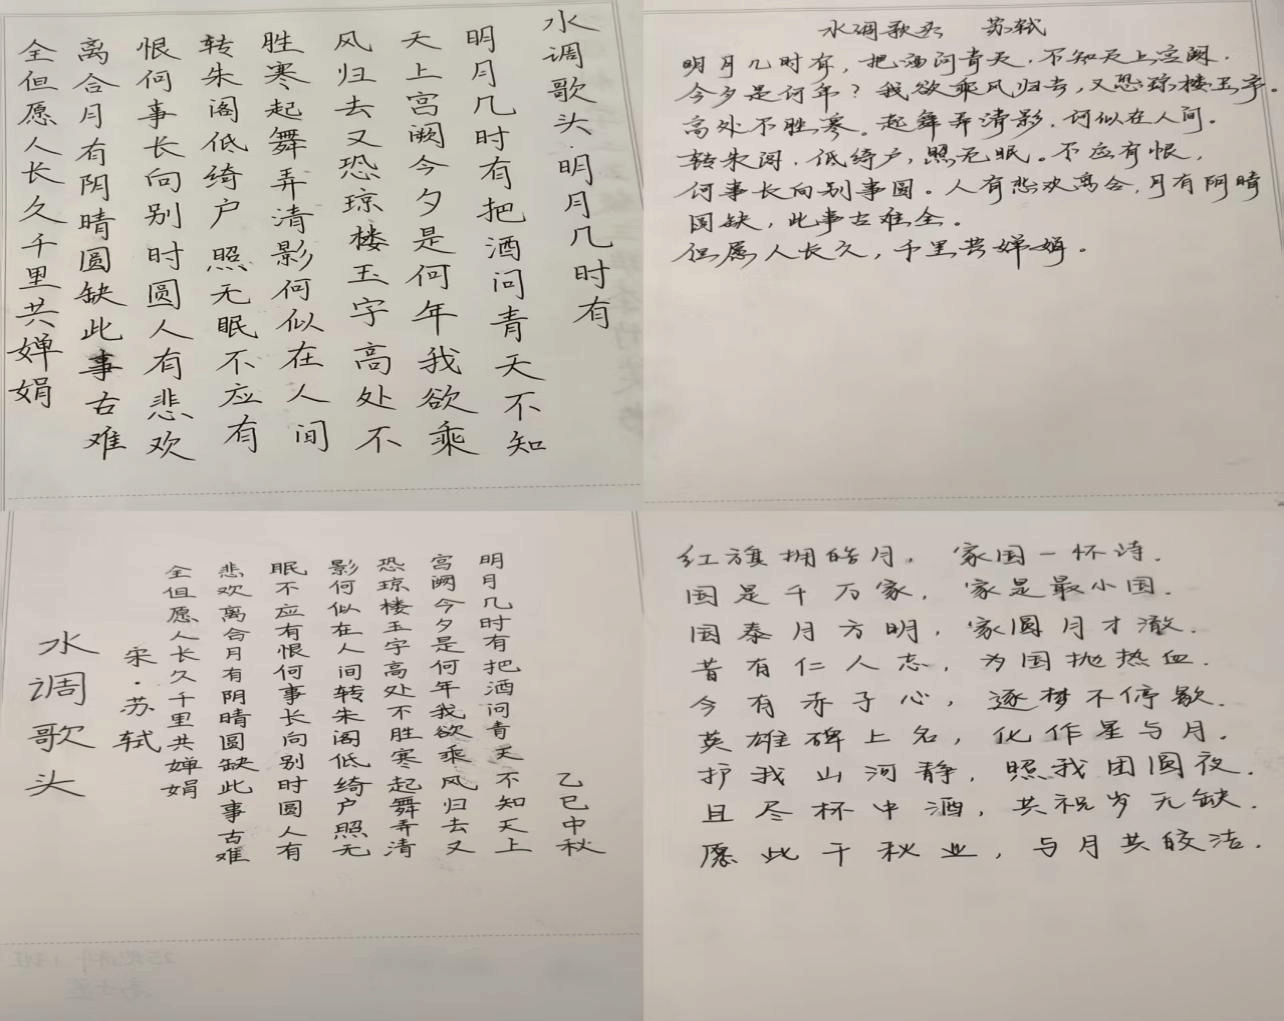 水调歌头·明月几时有
明月几时有把酒问青天不知
天上宫阙今夕是何年我欲乘
风归去又恐琼楼玉宇高处不
胜寒起舞弄清影何似在人间
转朱阁低绮户照无眠不应有
恨何事长向别时圆人有悲欢
离合月有阴晴圆缺此事古难
全但愿人长久千里共婵娟
水调歌头 苏轼
明月几时有，把酒问青天，不知天上宫阙，
今夕是何年？我欲乘风归去，又恐琼楼玉宇。
高处不胜寒。起舞弄清影，何似在人间。
转朱阁，低绮户，照无眠。不应有恨，
何事长向别事圆。人有悲欢离合，月有阴晴
圆缺，此事古难全。
但愿人长久，千里共婵娟。
乙巳中秋
明月几时有把酒问青天不知天上
宫阙今夕是何年我欲乘风归去又
恐琼楼玉宇高处不胜寒起舞弄清
影何似在人间转朱阁低绮户照无
眠不应有恨何事长向别时圆人有
悲欢离合月有阴晴圆缺此事古难
全但愿人长久千里共婵娟
宋·苏轼
水调歌头
红旗拥皓月，家国一怀诗．
国是千万家，家是最小国．
国泰月方明，家圆月才澈．
昔有仁人志，为国抛热血．
今有赤子心，逐梦不停歇．
英雄碑上名，化作星与月．
护我山河静，照我团圆夜．
且尽杯中酒，共祝岁无缺．
愿此千秋业，与月共皎洁．